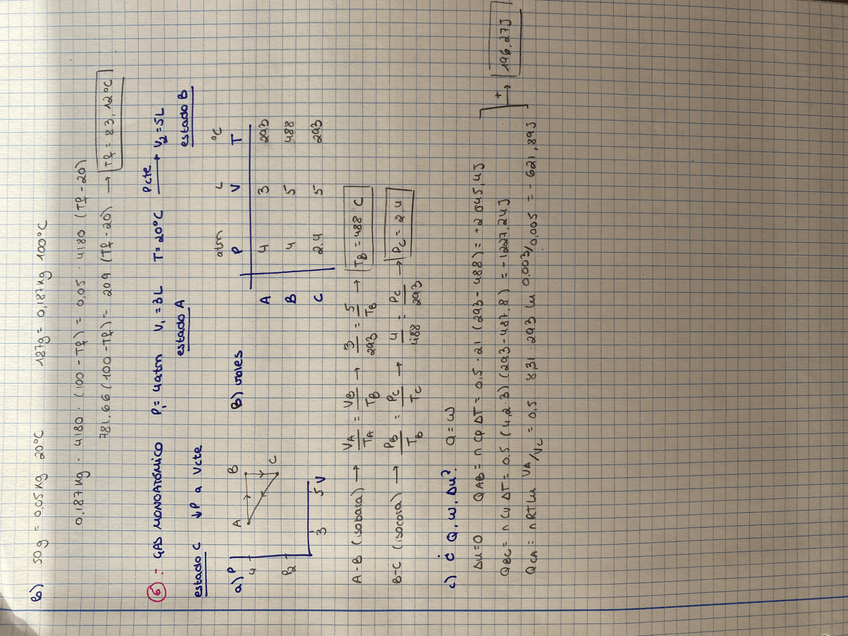 b) 50g = 0,05kg 20°C 187g = 0,187kg 100°C
0,187kg · 4180 · (100 - Tf) = 0,05 · 4180 (Tf - 20)
781,66 (100 - Tf) = 209 (Tf - 20) → Tf = 83,12°C
⑥ - GAS MONOATÓMICO P₁ = 4atm V₁ = 3L T = 20°C Pcte → V₂ = 5L
estado A estado B
estado C ↓P a Vcte
a) P
4
P₂
A B C
3 5 V
B) vales
atm L °C
P V T
A 4 3 293
B 4 5 488
C 2.4 5 293
A-B (isobara) → VA/TA = VB/TB → 3/293 = 5/TB → TB = 488 C
B-C (isocora) → PB/TB = PC/TC → 4/488 = PC/293 → PC = 2'4
c) ¿ Q, W, Δu? Q = W
Δu = 0 QAB = n Cp ΔT = 0.5 · 21 (293 - 488) = +2045,4J
QBC = n Cv ΔT = 0.5 (4,2·3) (293 - 487,8) = -1227,24J
QCA = nRTLn VA/VC = 0,5 8,31 293 ln 0,003/0,005 = -621,89J
+ → 196,27J